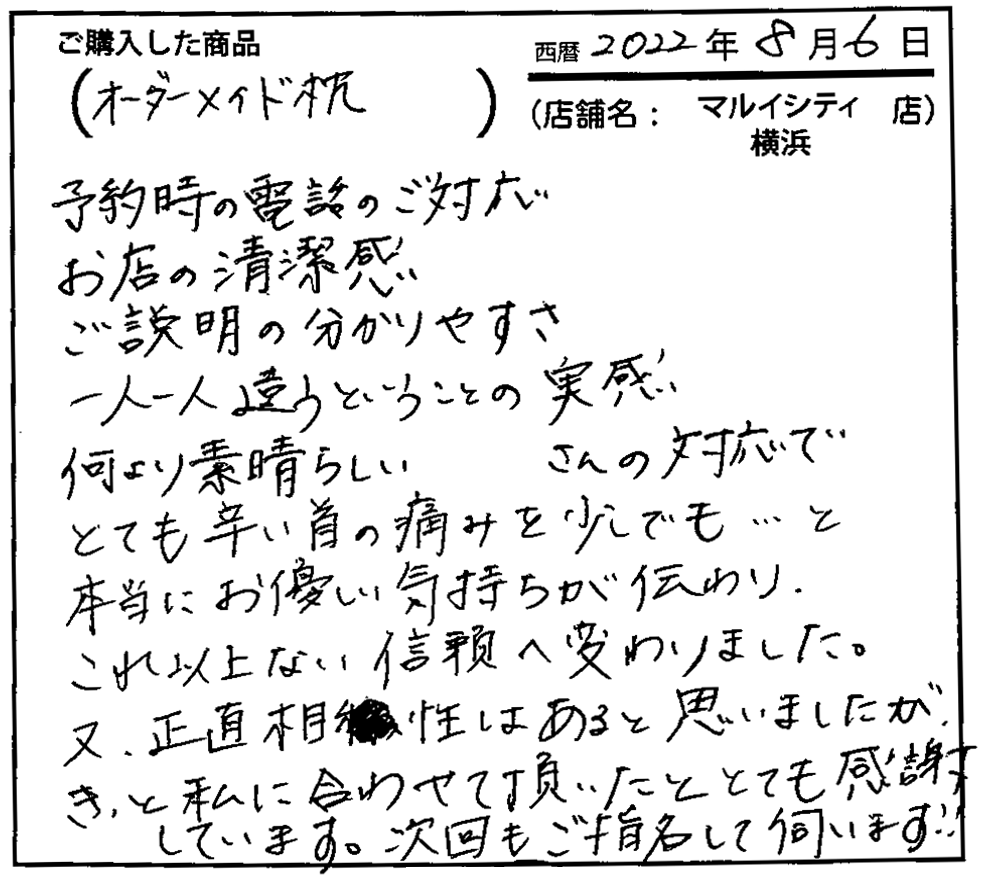 ご購入した商品
(オーダーメイド枕)
西暦 2022年 8月6日
(店舗名: マルイシティ横浜 店)
予約時の電話のご対応
お店の清潔感
ご説明の分かりやすさ
一人一人違うということの実感
何より素晴らしい さんの対応で
とても辛い首の痛みを少しでも…と
本当にお優しい気持ちが伝わり、
これ以上ない信頼へ変わりました。
又、正直相性はあると思いましたが、
きっと私に合わせて頂いたこととても感謝
しています。次回もご指名して伺います!!